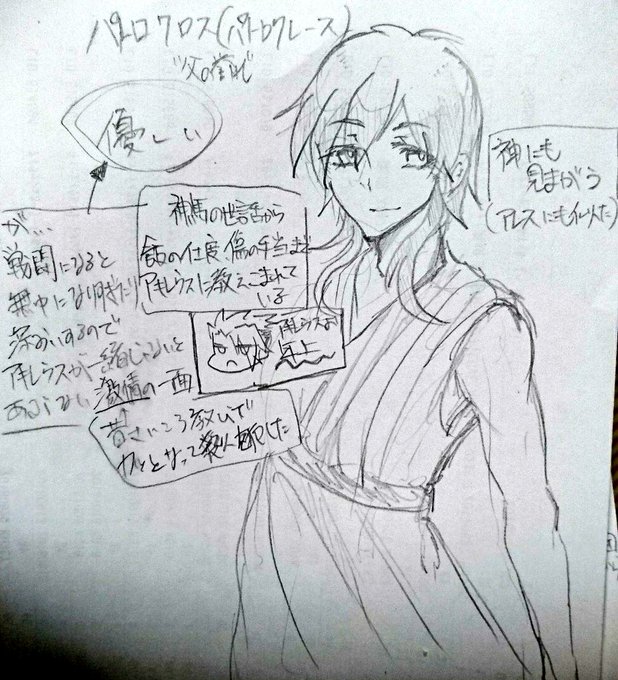 パトロクロス(パトロクレース)
"父の誉れ"
優しい
神にも
見まがう
(アレスにも似た)
神馬の世話から
飯の仕度、傷の手当まで
アキレウスに教えこまれて
いる
が…
戦闘になると
夢中になり
深おいするので
アキレウスが一緒じゃないと
あぶない 激情の一面
アキレウスより
年上
昔さいころ遊びで
カッとなって殺人を犯した